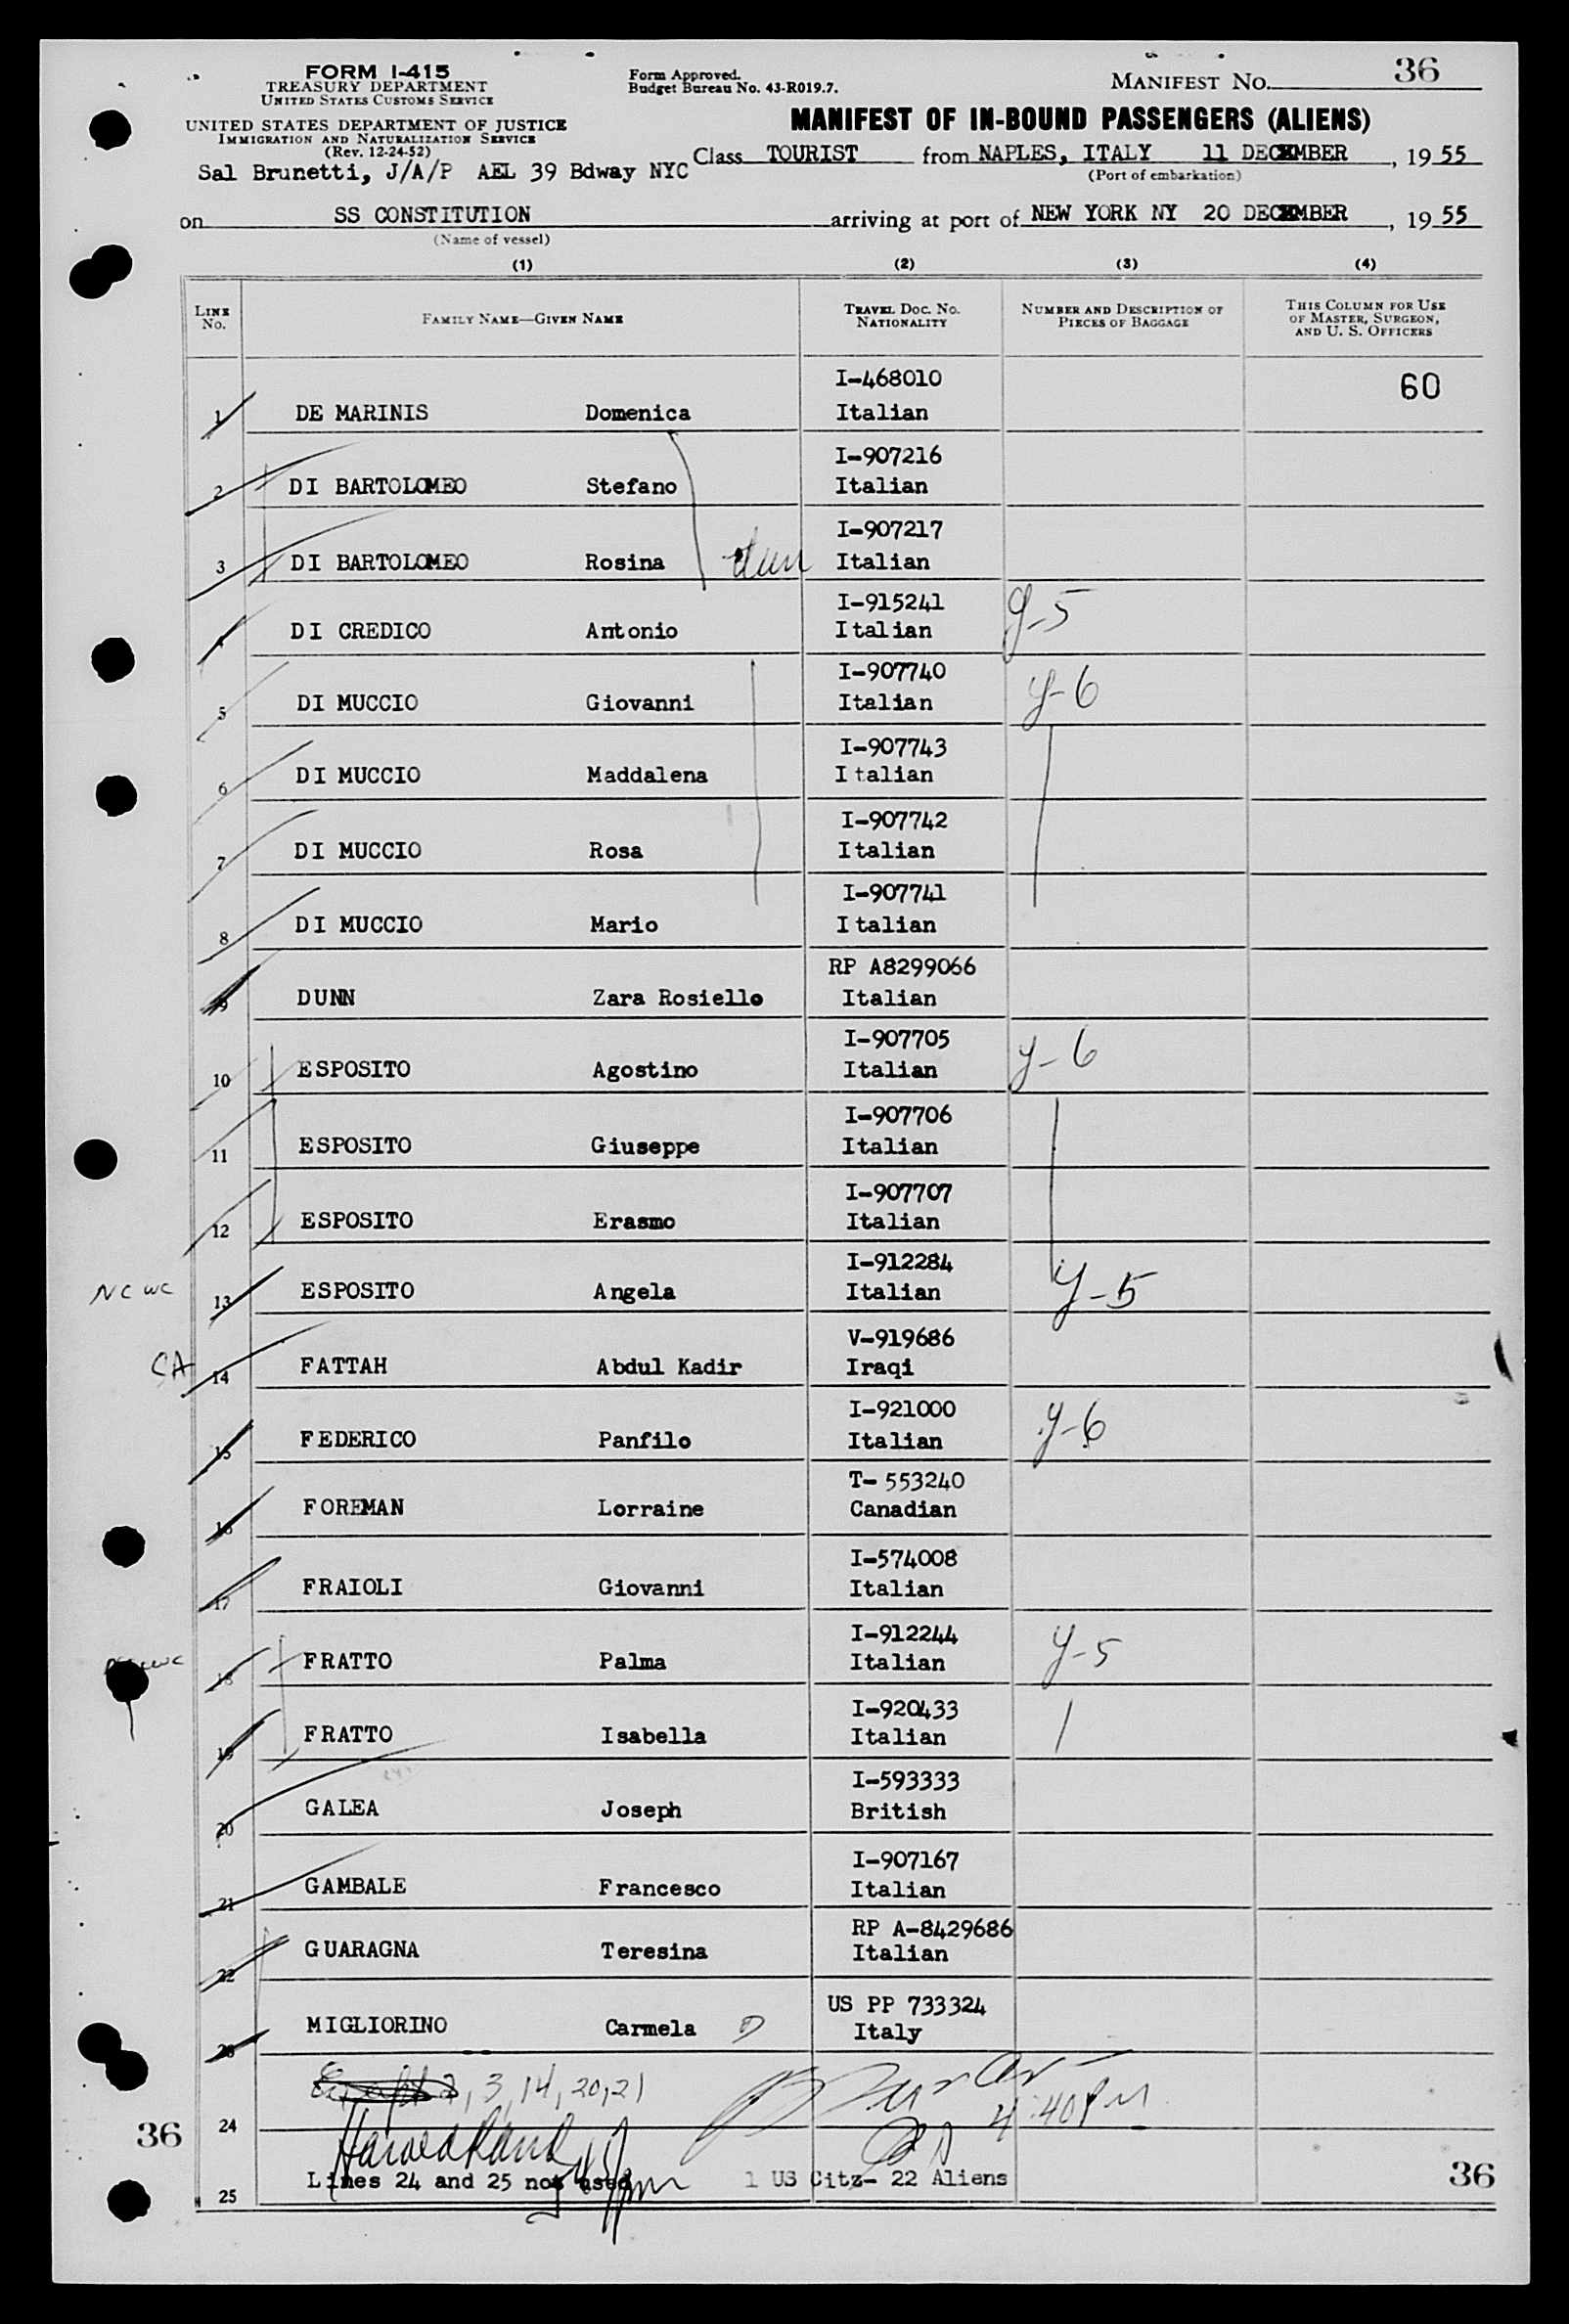 FORM I-415
TREASURY DEPARTMENT
UNITED STATES CUSTOMS SERVICE
UNITED STATES DEPARTMENT OF JUSTICE
IMMIGRATION AND NATURALIZATION SERVICE
(Rev. 12-24-52)
Form Approved.
Budget Bureau No. 43-R019.7.
MANIFEST NO. 36
MANIFEST OF IN-BOUND PASSENGERS (ALIENS)
Sal Brunetti, J/A/P AEL 39 Bdway NYC Class TOURIST from NAPLES, ITALY 11 DECEMBER, 19 55
(Port of embarkation)
on SS CONSTITUTION arriving at port of NEW YORK NY 20 DECEMBER, 19 55
(Name of vessel)
(1) (2) (3) (4)
LINE No. FAMILY NAME—GIVEN NAME TRAVEL DOC. NO. NATIONALITY NUMBER AND DESCRIPTION OF PIECES OF BAGGAGE THIS COLUMN FOR USE OF MASTER, SURGEON, AND U. S. OFFICERS
I-468010 60
1 DE MARINIS Domenica Italian
I-907216
2 DI BARTOLOMEO Stefano Italian
I-907217
3 DI BARTOLOMEO Rosina Italian
I-915241 y-5
4 DI CREDICO Antonio Italian
I-907740 y-6
5 DI MUCCIO Giovanni Italian
I-907743
6 DI MUCCIO Maddalena Italian
I-907742
7 DI MUCCIO Rosa Italian
I-907741
8 DI MUCCIO Mario Italian
RP A8299066
9 DUNN Zara Rosiello Italian
I-907705 y-6
10 ESPOSITO Agostino Italian
I-907706
11 ESPOSITO Giuseppe Italian
I-907707
12 ESPOSITO Erasmo Italian
I-912284
NC WC 13 ESPOSITO Angela Italian y-5
V-919686
CA 14 FATTAH Abdul Kadir Iraqi
I-921000 y-6
15 FEDERICO Panfilo Italian
T- 553240
16 FOREMAN Lorraine Canadian
I-574008
17 FRAIOLI Giovanni Italian
I-912244 y-5
18 FRATTO Palma Italian
I-920433
19 FRATTO Isabella Italian
I-593333
20 GALEA Joseph British
I-907167
21 GAMBALE Francesco Italian
RP A-8429686
22 GUARAGNA Teresina Italian
US PP 733324
23 MIGLIORINO Carmela Italy
, 3, 14, 20, 21
4:40 PM
36 24
25 Lines 24 and 25 not used 1 US Citz- 22 Aliens 36